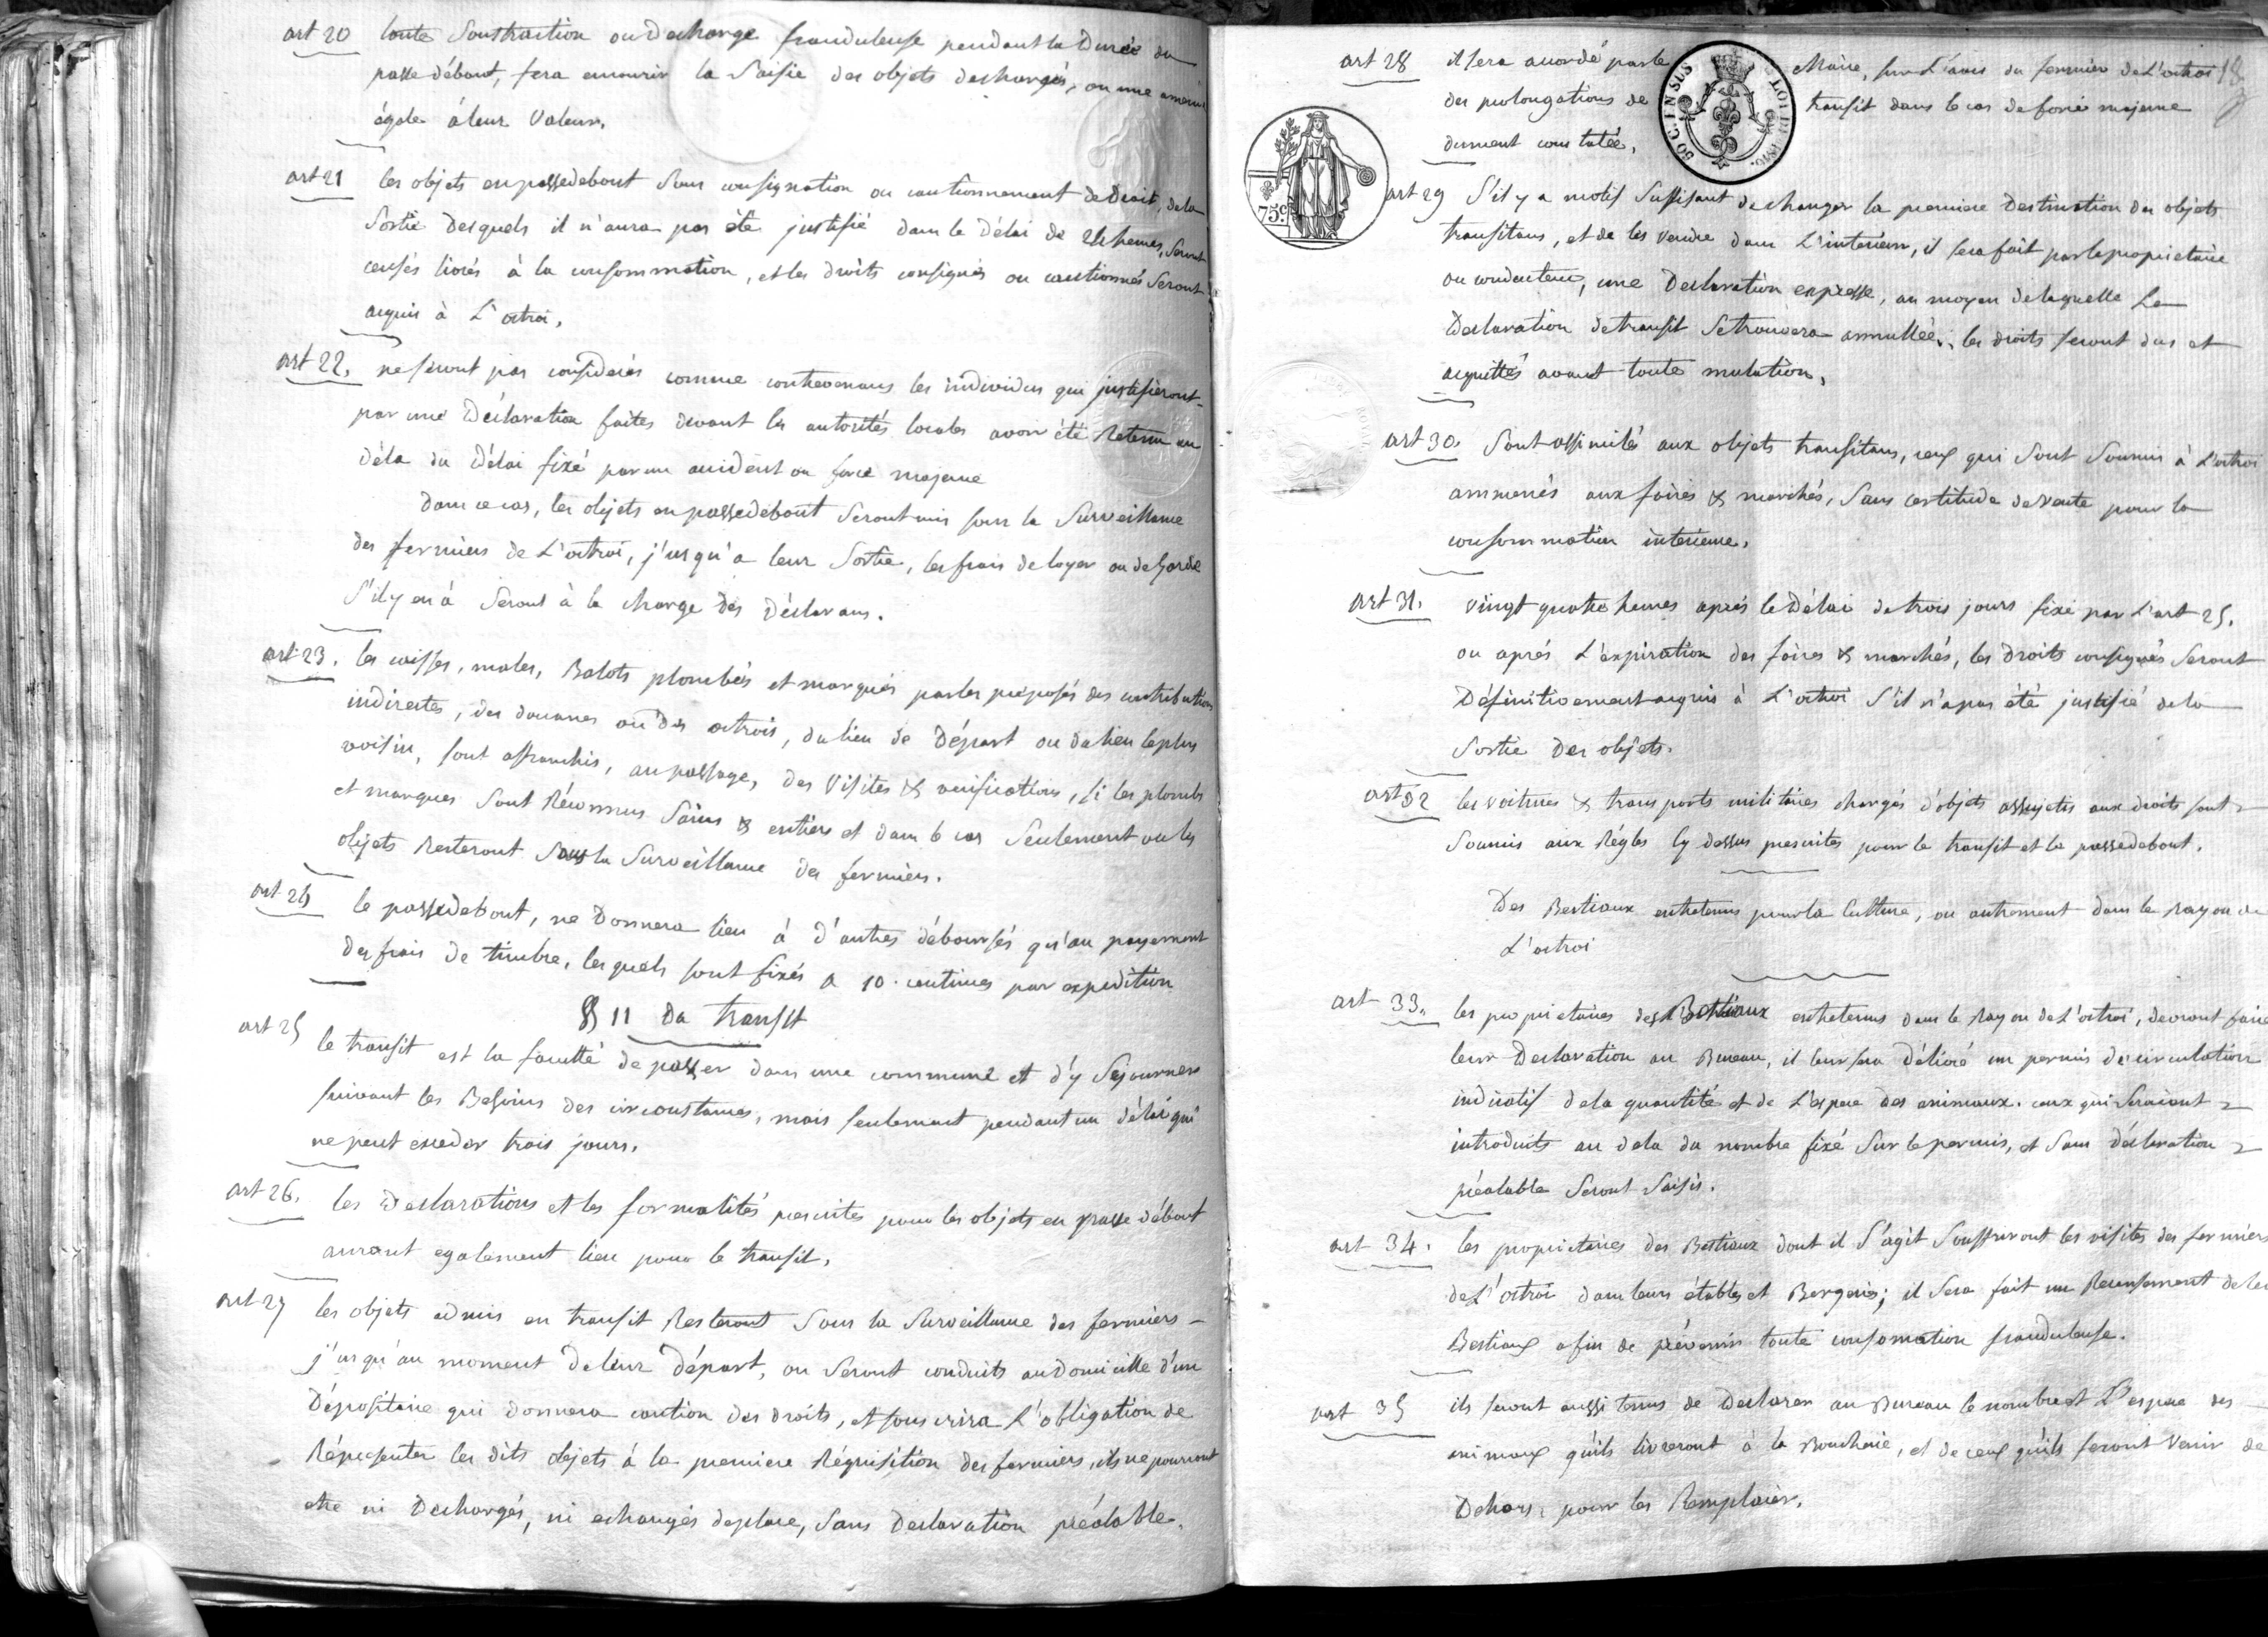 art 20 toute Soustraction ou Decharge frauduleuse pendant la Durée du
passe débout, fera encourir la Saisie des objets dechargés, ou une amende
égale à leur Valeur.
art 21 les objets en passedebout Sous consignation ou cautionnement de Droit, de la
Sortie desquels il n'aura pas été justifié dans le Délai de 24 heures, Seront
censés livrés à la consommation, et les droits consignés ou cautionnés Seront
acquis à L'octroi,
art 22. ne Seront pas considerés comme contrevenans les individus qui justifieront
par une Déclaration faites devant les autorités locales avoir été Retenu au
déla du Délai fixé par un accident ou force majeure
dans ce cas, les objets en passedebout Seront mis sous la Surveillance
des fermiers de L'octroi, j'usqu'a leur Sortie, les frais de loyer ou de Garde
S'il y en à Seront à la charge des Déclarans.
art 23. les caisses, males, Balots plombés et marqués par les préposés des contributions
indirectes, des douanes ou des octrois, du lieu de Départ ou du lieu le plus
voisin, sont affranchis, au passage, des Visites & verifications, si les plombs
et marques Sont Réconnus Sains & entiers et dans le cas Seulement ou les
objets Resteront Sous la Surveillance des fermiers.
art 24 le passedebout, ne Donnera lieu à d'autres déboursés qu'au payement
des frais de timbre, lesquels sont fixés a 10. centimes par expedition
§ 11 Du transit
art 25 le transit est la faculté de passer dans une commune et d'y Sejourner
suivant les Besoins des circonstances, mais seulement pendant un délai qui
ne peut exceder trois jours.
art 26. les Declarations et les formalités prescrites pour les objets en passe débout
auront egalement lieu pour le transit,
art 27 les objets admis en transit Resteront Sous la Surveillance des fermiers
j'usqu'au moment de leur départ, ou Seront conduits au domicille d'un
Dépositaire qui donnera caution des droits, et souscrira L'obligation de
Répresenter les dits objets à la premiere Réquisition des fermiers, ils ne pourront
etre ni Dechargés, ni echangés deplace, Sans Declaration préalable.
18
art 28 il sera accordé par le Maire, sur L'avis du fermier de L'octroi
des prolongations de transit dans le cas de force majeure
dument constatée,
50 C. EN SUS LOI DE 1816.
75 c
art 29 S'il y a motif Suffisant de changer la premiere Destination des objets
transitans, et de les vendre dans L'interieur, il sera fait par le proprietaire
ou conducteur, une Declaration expresse, au moyen de laquelle La
Declaration de transit Se trouvera annullée; les droits seront dus et
acquittés avant toute mutation,
art 30. Sont assimilés aux objets transitans, ceux qui Sont Soumis à L'octroi
ammenés aux foires & marchés, Sans certitude de Vente pour la
consommation interieure.
art 31. vingt quatre heures aprés le Délai de trois jours fixé par L'art 25.
ou aprés L'expiration des foires & marchés, les Droits consignés Seront
Définitivement acquis à L'octroi S'il n'a pas été justifié de la
Sortie Des objets.
art 32 les voitures & transports militaires chargés d'objets assujetis aux droits sont
Soumis aux Régles Cy dessus prescrites pour le transit et le passedebout.
Des Bestiaux entretenus pour la Culture, ou autrement dans le Rayon de
L'octroi
art 33. les proprietaires des Bestiaux entretenus dans le Rayon de L'octroi, devront faire
leur Declaration au Bureau, il leur sera Délivré un permis de circulation
indicatif de la quantité et de L'espece des animaux. ceux qui Seraient
introduits au dela du nombre fixé Sur le permis, et Sans Déclaration
préalable Seront Saisis.
art 34. les proprietaires des Bestiaux dont il S'agit Souffriront les visites des fermiers
de L'octroi dans leurs étables et Bergeries; il Sera fait un Recensement de les
Bestiaux afin de prévenir toute consomation frauduleuse.
art 35 ils seront aussi tenus de Declarer au Bureau le nombre et L'espece des
animaux qu'ils livreront à la Boucherie, et de ceux qu'ils feront Venir de
Dehors, pour les Remplacer.